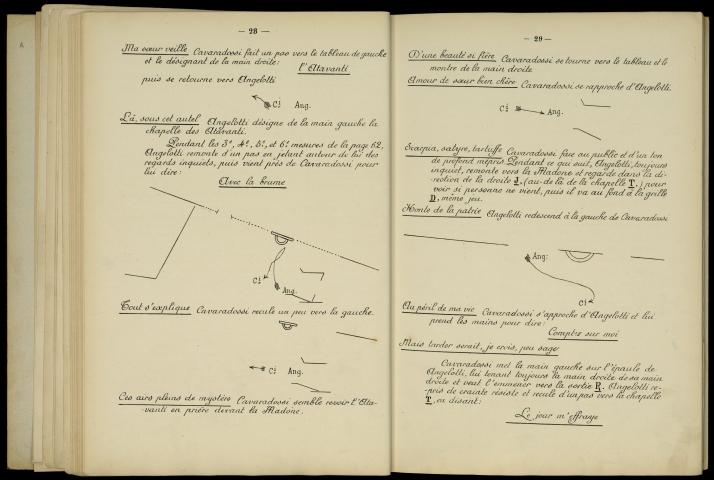 — 28 —
Ma sœur veille Cavaradossi fait un pas vers le tableau de gauche
et le désignant de la main droite:
l'Atavanti
puis se retourne vers Angelotti
Cᵈ Ang.
Là, sous cet autel Angelotti désigne de la main gauche la
chapelle des Atavanti.
Pendant les 3ᵉ, 4ᵉ, 5ᵉ, et 6ᵉ mesures de la page 62,
Angelotti remonte d'un pas en jetant autour de lui des
regards inquiets, puis vient près de Cavaradossi pour
lui dire:
Avec la brume
Cᵈ
Ang.
Tout s'explique Cavaradossi recule un peu vers la gauche.
Cᵈ Ang.
Ces airs pleins de mystère Cavaradossi semble revoir l'Ata-
vanti en prière devant la Madone.
— 29 —
D'une beauté si fière Cavaradossi se tourne vers le tableau et le
montre de la main droite
Amour de sœur bien chère Cavaradossi se rapproche d'Angelotti.
Cᵈ Ang.
Scarpia, satyre, tartuffe Cavaradossi face au public et d'un ton
de profond mépris Pendant ce qui suit, Angelotti, toujours
inquiet, remonte vers la Madone et regarde dans la di-
rection de la droite J, (au-delà de la chapelle T,) pour
voir si personne ne vient, puis il va au fond à la grille
D, même jeu.
Honte de la patrie Angelotti redescend à la gauche de Cavaradossi
Ang:
Cᵈ
Au péril de ma vie Cavaradossi s'approche d'Angelotti et lui
prend les mains pour dire:
Comptez sur moi
Mais tarder serait, je crois, peu sage
Cavaradossi met la main gauche sur l'épaule de
Angelotti, lui tenant toujours la main droite de sa main
droite et veut l'emmener vers la sortie R. Angelotti re-
-pris de crainte résiste et recule d'un pas vers la chapelle
T, en disant:
Le jour m'effraye